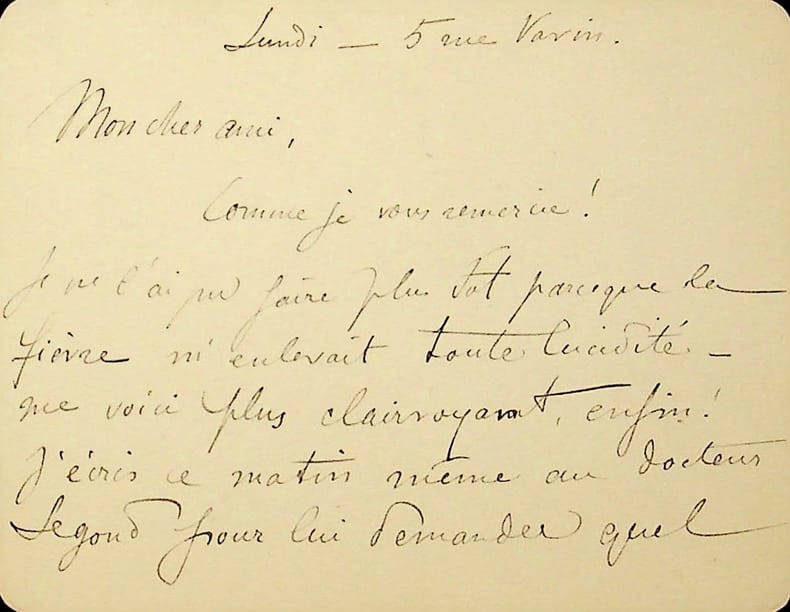 Lundi — 5 rue Varin.
Mon cher ami,
Comme je vous remercie !
Je ne l'ai pu faire plus tôt parceque la
fièvre m'enlevait toute lucidité —
me voici plus clairvoyant, enfin !
J'écris ce matin même au docteur
Segond pour lui demander quel